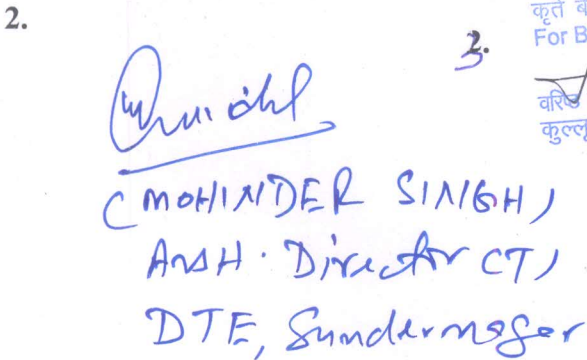 2.
3.
कृते ब
For B
वरिष्ठ
कुल्लू
(MOHINDER SINGH)
Director (T)
DTE, Sundernagar